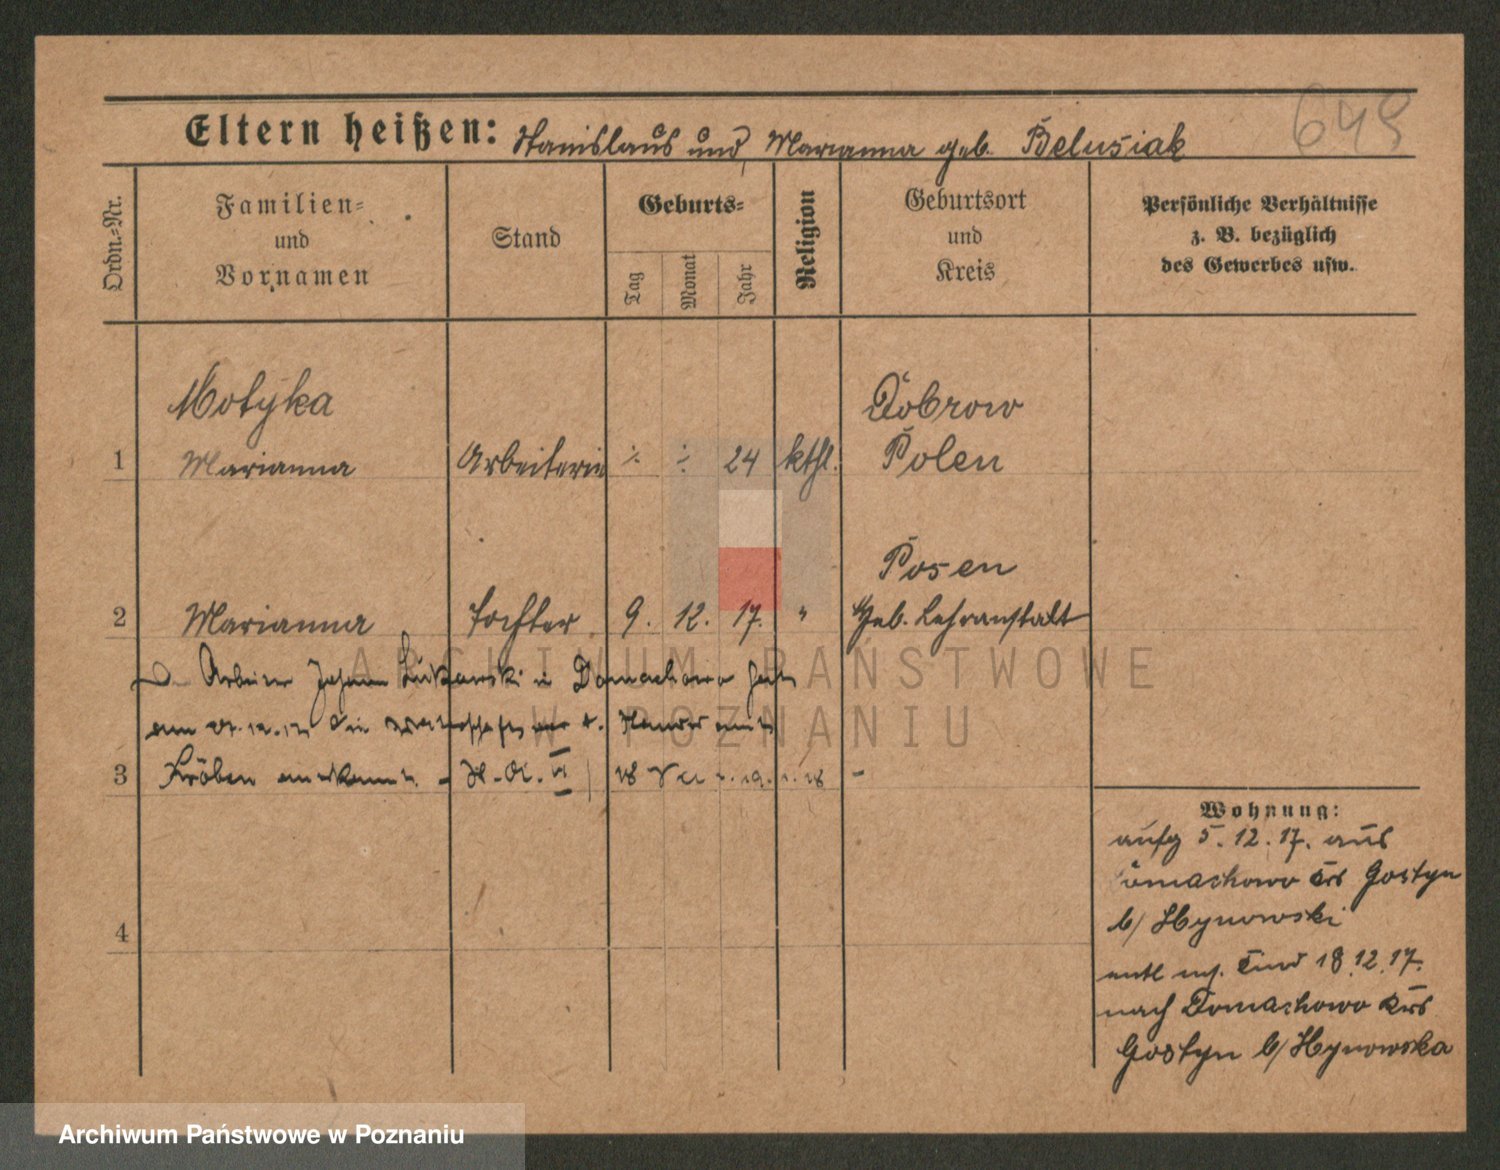 649
Eltern heißen: Stanislaus und Marianna geb. Belusiak
Ordn.=Nr.
Familien=
und
Vornamen
Stand
Geburts=
Tag
Monat
Jahr
Religion
Geburtsort
und
Kreis
Persönliche Verhältnisse
z. B. bezüglich
des Gewerbes usw.
Motyka Dobrow
1 Marianna Arbeiterin ·/. ·/. 24 kthl. Polen
Posen
2 Marianna Tochter 9. 12. 17. " Geb. Lehranstalt
Arbeiter Johann in Domachowo
am die
3 Kröben anerkannt. -
4
Wohnung:
aufg 5.12.17. aus
Domachowo Krs Gostyn
b/ Hynowski
entl m. Kind 18.12.17.
nach Domachowo Krs
Gostyn b/ Hynowska
ARCHIWUM PAŃSTWOWE
W POZNANIU
Archiwum Państwowe w Poznaniu